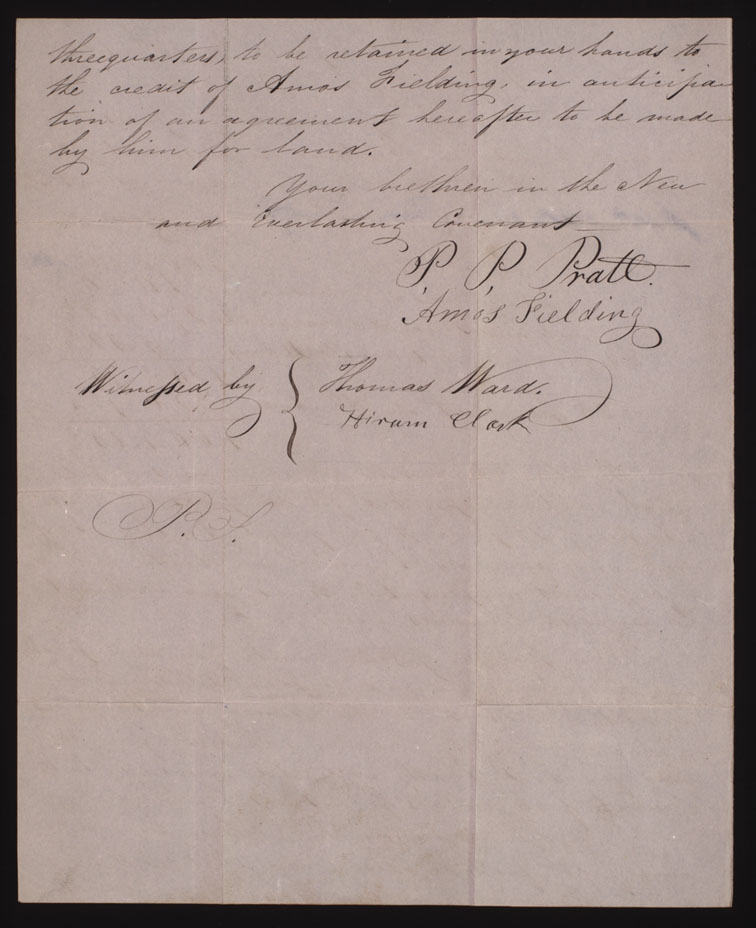 threequarters, to be retained in your hands to
the credit of Amos Fielding, in anticipa-
tion of an agreement hereafter to be made
by him for land.
Your brethren in the New
and Everlasting Covenant
P. P. Pratt.
Amos Fielding
Witnessed by { Thomas Ward.
Hiram Clark
P.S.